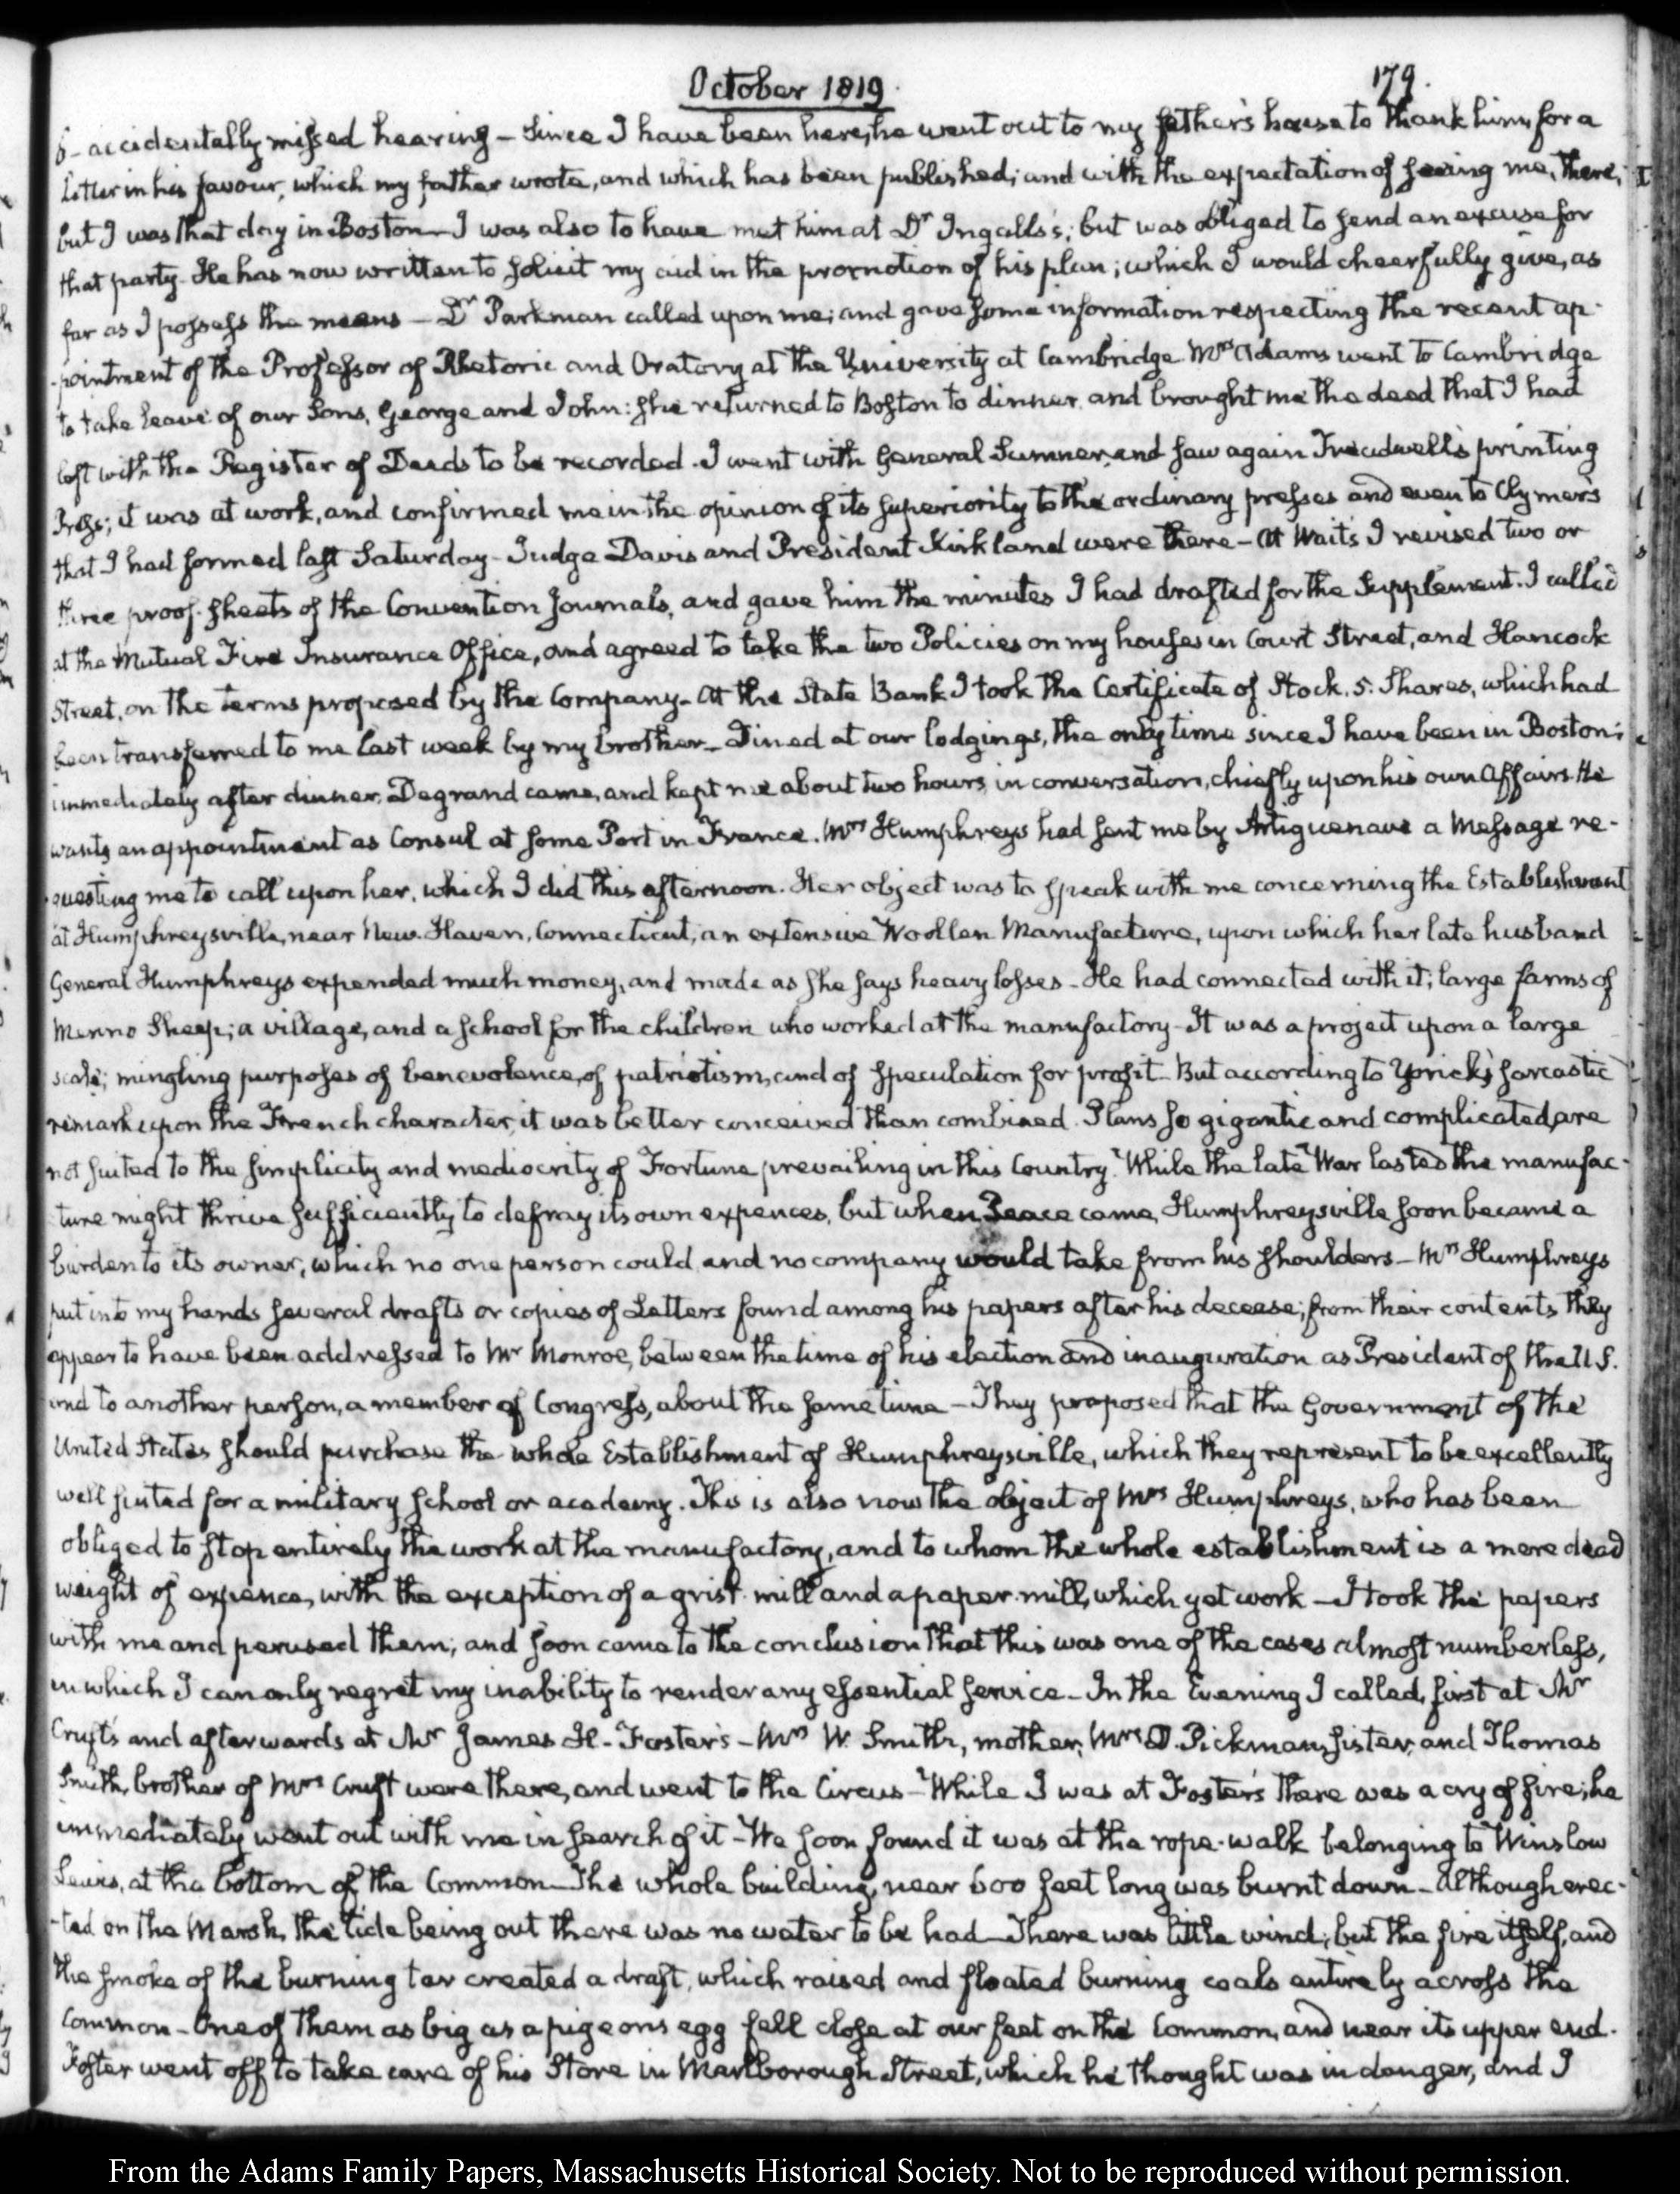 October 1819.
179.
6- accidentally missed hearing - Since I have been here, he went out to my father's house to thank him for a
letter in his favour, which my father wrote, and which has been published; and with the expectation of seeing me, there;
but I was that day in Boston - I was also to have met him at Dr Ingalls's; but was obliged to send an excuse for
that party. He has now written to solicit my aid in the promotion of his plan; which I would cheerfully give, as
far as I possess the means - Dr Parkman called upon me; and gave some information respecting the recent ap-
-pointment of the Professor of Rhetoric and Oratory at the University at Cambridge Mrs Adams went to Cambridge
to take leave of our Sons, George and John: she returned to Boston to dinner, and brought me the deed that I had
left with the Register of Deeds to be recorded. I went with General Sumner, and saw again Treadwell's printing
Press; it was at work, and confirmed me in the opinion of its superiority to the ordinary presses and even to Clymer's
that I had formed last Saturday - Judge Davis and President Kirkland were there - At Wait's I revised two or
three proof-sheets of the Convention Journals, and gave him the minutes I had drafted for the Supplement. I called
at the Mutual Fire Insurance Office, and agreed to take the two Policies on my houses in Court Street, and Hancock
Street, on the terms proposed by the Company - At the State Bank I took the Certificate of Stock. 5. Shares, which had
been transferred to me last week by my brother - Dined at our lodgings, the only time since I have been in Boston;
immediately after dinner, Degrand came, and kept me about two hours in conversation, chiefly upon his own affairs. He
wants an appointment as Consul at some Port in France. Mrs Humphreys had sent me by Artiguenave a Message re-
-questing me to call upon her, which I did this afternoon. Her object was to speak with me concerning the Establishment
at Humphreysville, near New-Haven, Connecticut; an extensive Woollen Manufacture, upon which her late husband
General Humphreys expended much money, and made as she says heavy losses - He had connected with it; large farms of
Merino Sheep; a village, and a school for the children who worked at the manufactory - It was a project upon a large
scale; mingling purposes of benevolence, of patriotism, and of speculation for profit - But according to Yorick's sarcastic
remark upon the French character, it was better conceived than combined. Plans so gigantic and complicated, are
not suited to the simplicity and mediocrity of Fortune prevailing in this Country. While the late War lasted the manufac-
ture might thrive sufficiently to defray its own expences, but when Peace came, Humphreysville soon became a
burden to its owner, which no one person could, and no company would take from his shoulders - Mrs Humphreys
put into my hands several drafts or copies of Letters found among his papers after his decease; from their contents they
appear to have been addressed to Mr Monroe, between the time of his election and inauguration as President of the U.S.
and to another person, a member of Congress, about the same time - They proposed that the Government of the
United States should purchase the whole Establishment of Humphreysville, which they represent to be excellently
well suited for a military school or academy. This is also now the object of Mrs Humphreys, who has been
obliged to stop entirely the work at the manufactory, and to whom the whole establishment is a mere dead
weight of expence, with the exception of a grist-mill and a paper-mill, which yet work - I took the papers
with me and perused them; and soon came to the conclusion that this was one of the cases almost numberless,
in which I can only regret my inability to render any essential service - In the Evening I called, first at Mr
Cruft's and afterwards at Mr James H. Foster's - Mrs W. Smith, mother, Mrs D. Pickman, sister, and Thomas
Smith, brother of Mrs Cruft were there, and went to the Circus - While I was at Foster's there was a cry of fire; he
immediately went out with me in search of it - We soon found it was at the rope-walk belonging to Winslow
Lewis, at the bottom of the Common - The whole building, near 600 feet long was burnt down - Although erec-
-ted on the Marsh, the tide being out there was no water to be had - There was little wind; but the fire itself, and
the smoke of the burning tar created a draft, which raised and floated burning coals entirely across the
Common - One of them as big as a pigeon's egg fell close at our feet on the Common, and near its upper end.
Foster went off to take care of his Store in Marlborough Street, which he thought was in danger, and I
From the Adams Family Papers, Massachusetts Historical Society. Not to be reproduced without permission.